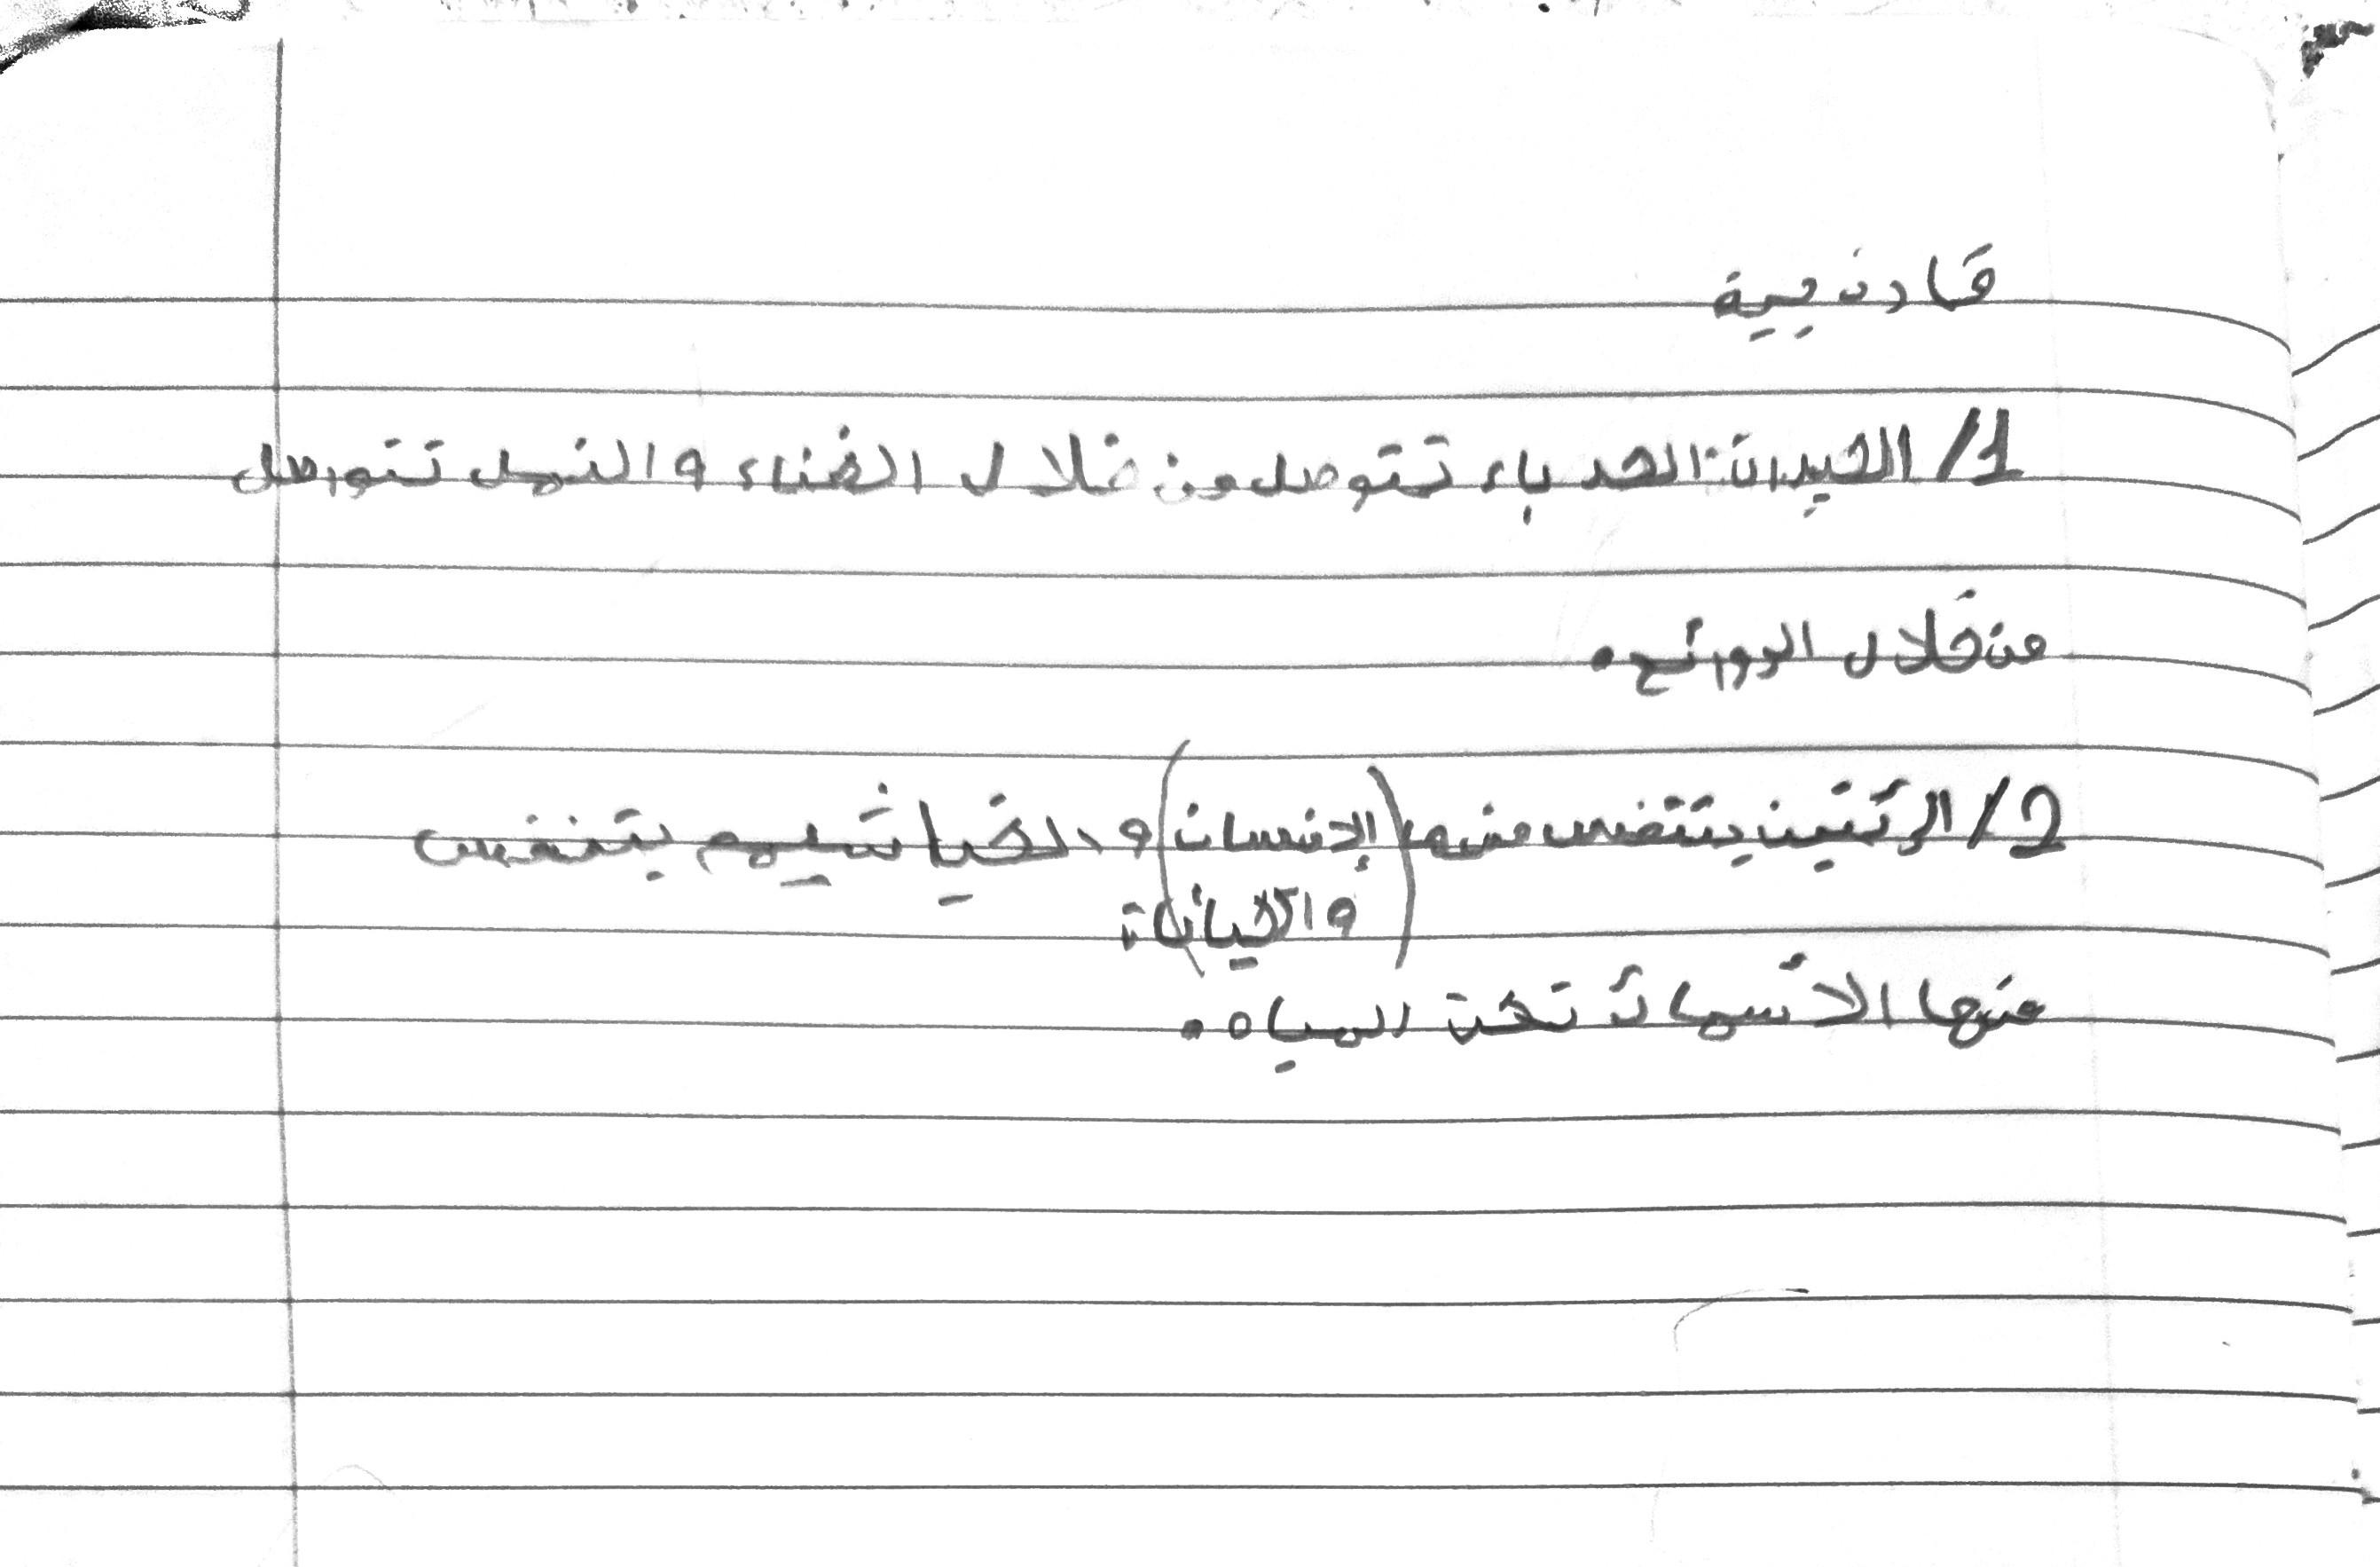 قارن بين
1/ الحيتان الحدباء تتوصل من خلال الغناء و النمل تتواصل
من خلال الروائح.
2/ الرئتين يتنفس منها (الإنسان) و الخياشيم يتنفس
و الحيوانات
منها الأسماك تحت المياه.